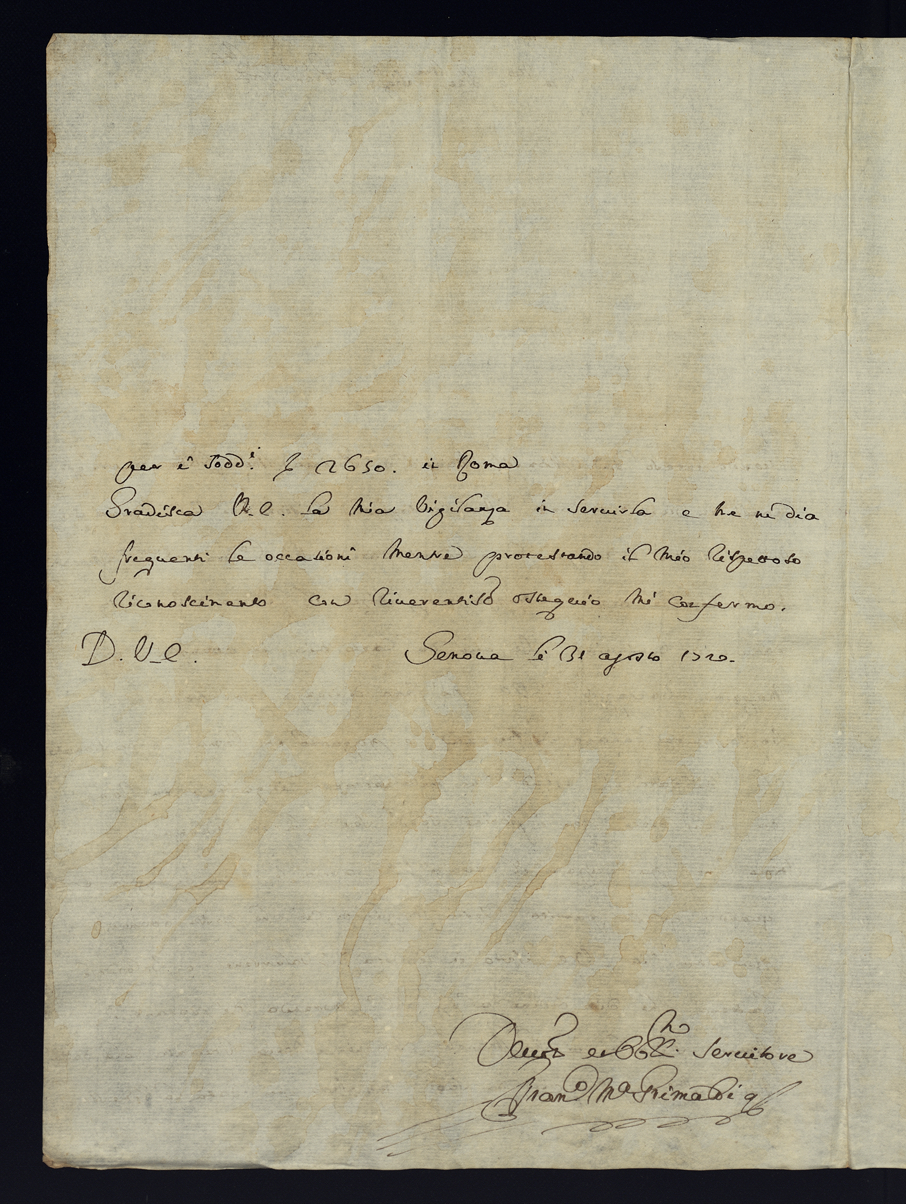 per i sodd.i £ 2650. in Roma
Gradisca V.E. la mia vigilanza in servirla e me ne dia
frequenti le occasioni mentre protestando il mio rispettoso
riconoscimento con riverentis.o ossequio mi confermo.
D. V.E. Genova li 31 agosto 1720.
Devot. et obbl.mo Servitore
Fran.o M.a Grimaldi q